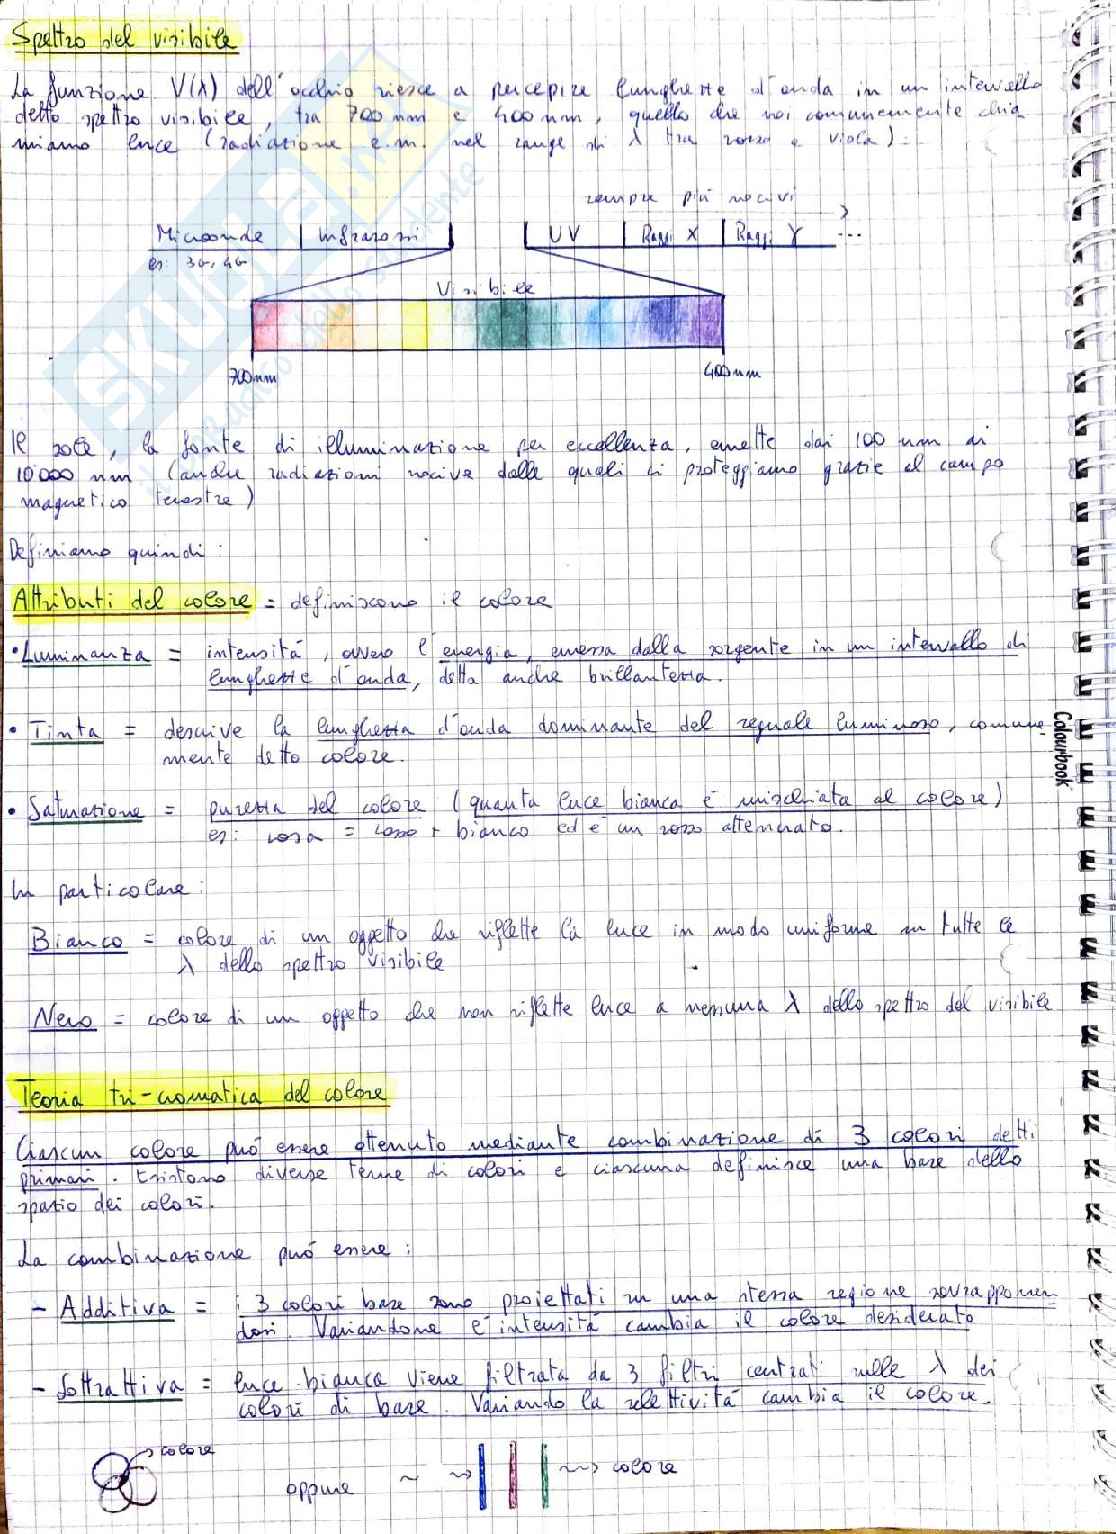 Spettro del visibile
La funzione V(λ) dell'occhio riesce a percepire lunghezze d'onda in un intervallo
detto spettro visibile, tra 700 nm e 400 nm, quello che noi comunemente chia
miamo luce (radiazione e.m. nel range di λ tra rosso e viola).
sempre più nocivi
Microonde | Infrarossi | UV | Raggi X | Raggi γ ...
es: 3G, 4G
Visibile
700 nm 400 nm
Il sole, la fonte di illuminazione per eccellenza, emette dai 100 nm ai
10'000 nm (anche radiazioni nocive dalle quali ci proteggiamo grazie al campo
magnetico terrestre)
Definiamo quindi:
Attributi del colore = definiscono il colore
• Luminanza = intensità, ovvero l'energia, emessa dalla sorgente in un intervallo di
lunghezze d'onda, detta anche brillantezza.
• Tinta = descrive la lunghezza d'onda dominante del segnale luminoso, comune
mente detto colore.
• Saturazione = purezza del colore (quanta luce bianca è mischiata al colore)
es: rosa = rosso + bianco ed è un rosso attenuato.
In particolare:
Bianco = colore di un oggetto che riflette la luce in modo uniforme in tutte le
λ dello spettro visibile
Nero = colore di un oggetto che non riflette luce a nessuna λ dello spettro del visibile
Teoria tri-cromatica del colore
Ciascun colore può essere ottenuto mediante combinazione di 3 colori detti
primari. Esistono diverse terne di colori e ciascuna definisce una base dello
spazio dei colori.
La combinazione può essere:
- Additiva = i 3 colori base sono proiettati in una stessa regione sovrapponen
dosi. Variandone l'intensità cambia il colore desiderato
- Sottrattiva = luce bianca viene filtrata da 3 filtri centrati sulle λ dei
colori di base. Variando la selettività cambia il colore.
colore
oppure ~ ~> ~> colore
Colourbook
SKUOLA